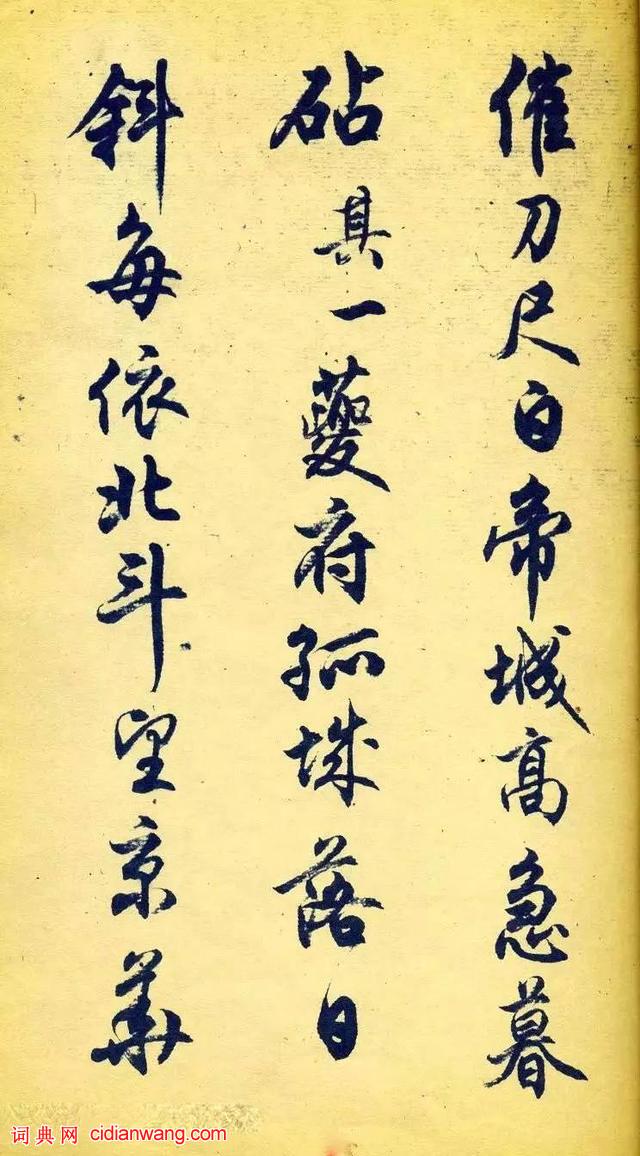 催刀尺白帝城高急暮
砧其一夔府孤城落日
斜每依北斗望京華
词典网 cidianwang.com